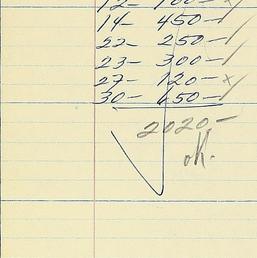 12- 100- x
14- 450-✓
22- 250-✓
23- 300-✓
27- 120- x
30- 650-✓
2020-
ok.